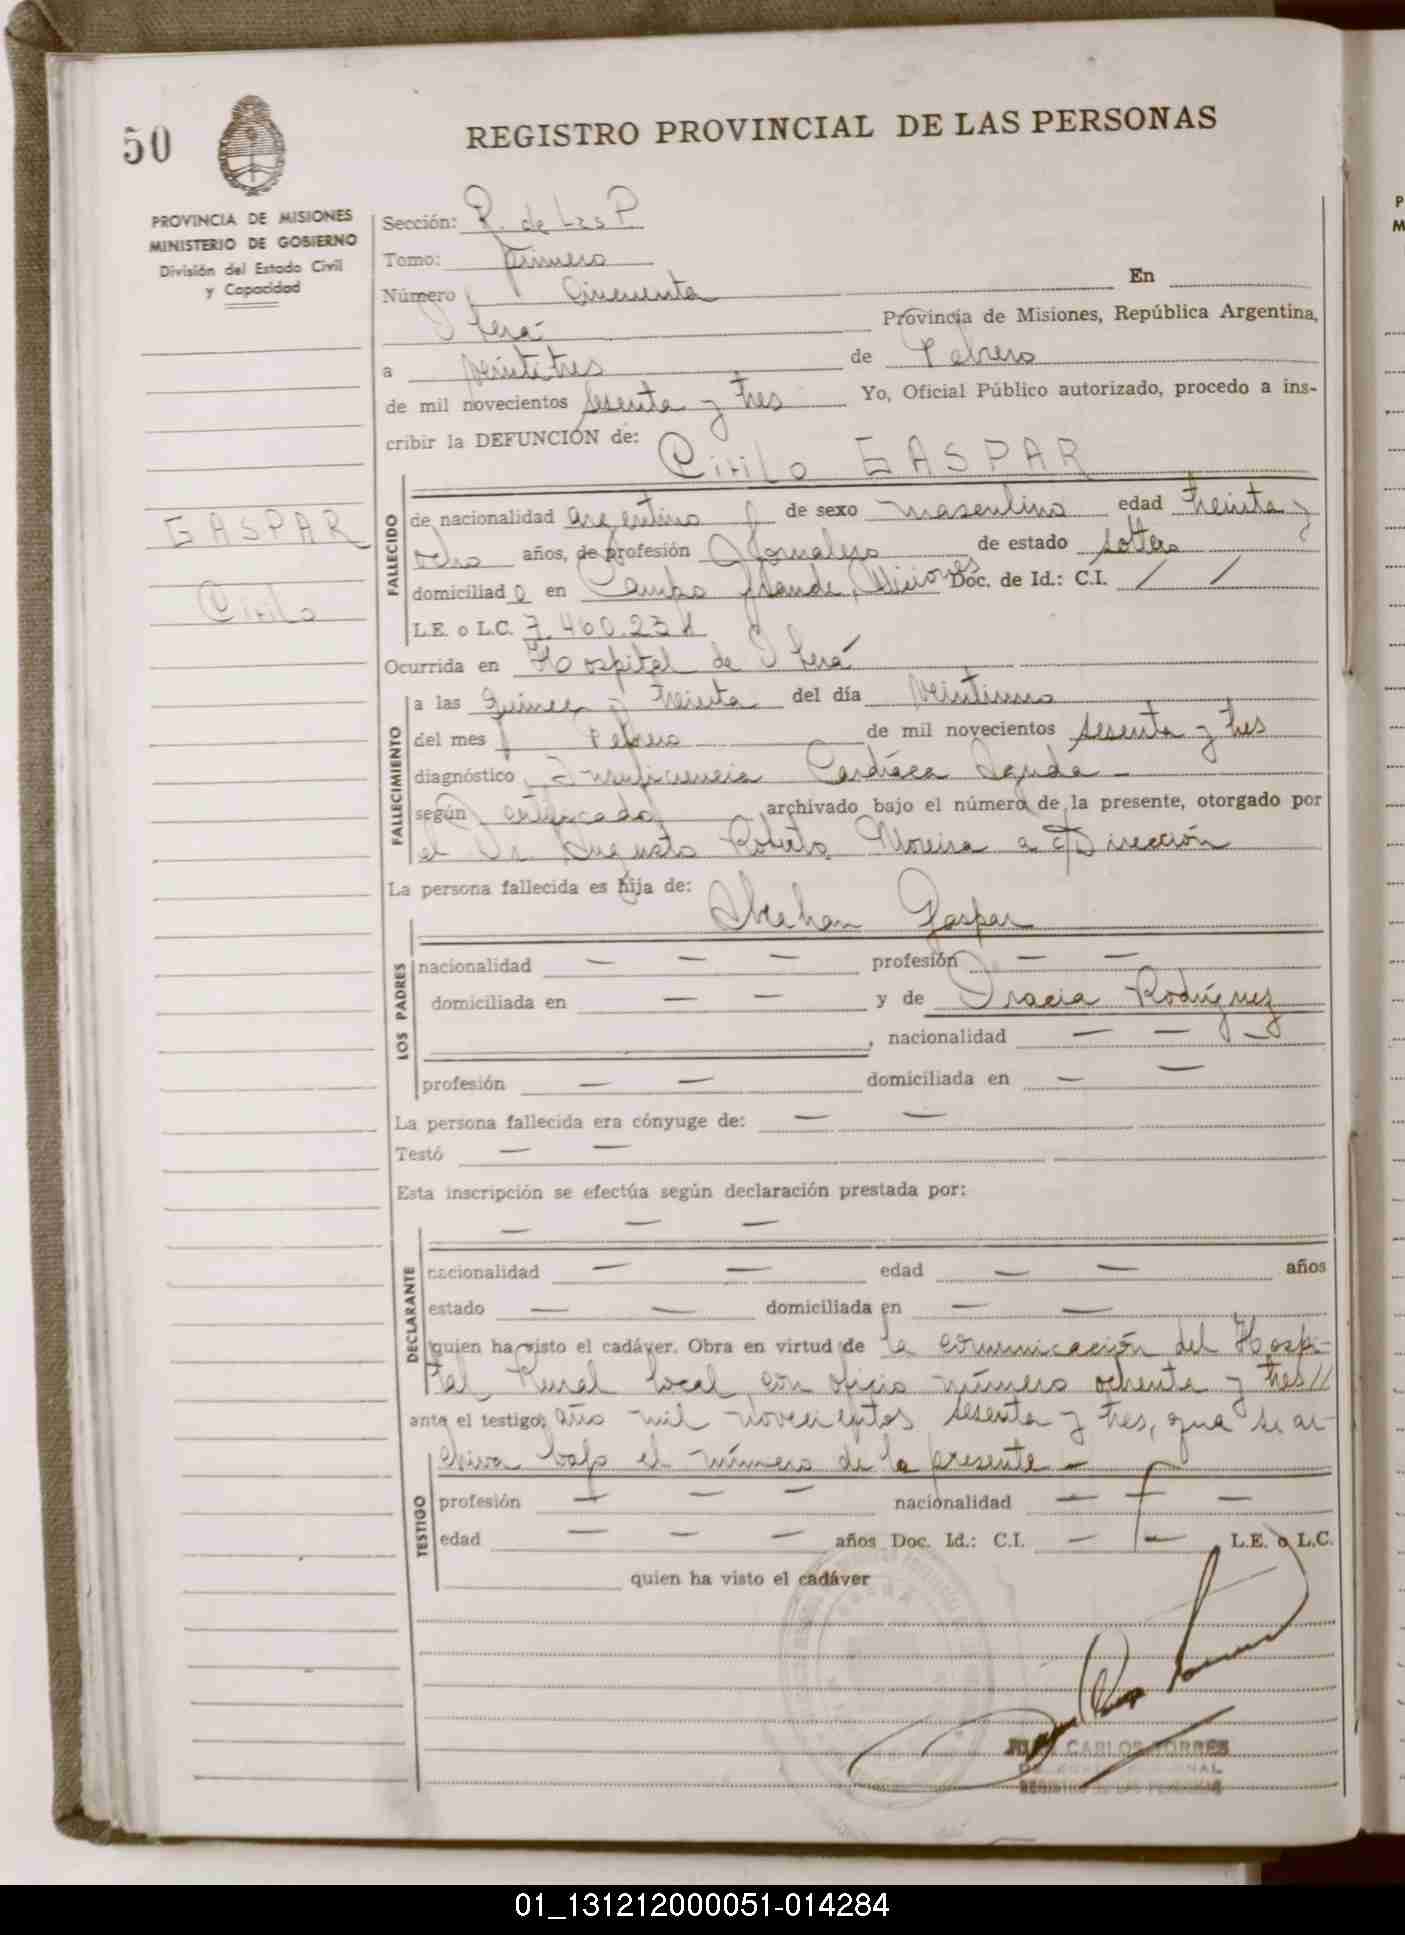 50
REGISTRO PROVINCIAL DE LAS PERSONAS
PROVINCIA DE MISIONES
MINISTERIO DE GOBIERNO
División del Estado Civil
y Capacidad
Sección: R. de Las P.
Tomo: Primero
Número Cincuenta En
Oberá Provincia de Misiones, República Argentina,
a veintitres de Febrero
de mil novecientos sesenta y tres Yo, Oficial Público autorizado, procedo a ins-
cribir la DEFUNCIÓN de: Cirilo GASPAR
GASPAR
Cirilo
FALLECIDO
de nacionalidad argentino de sexo masculino edad treinta y
ocho años, de profesión Jornalero de estado soltero
domiciliado en Campo Grande, Misiones Doc. de Id.: C.I. / /
L.E. o L.C.
Ocurrida en Hospital de Oberá
FALLECIMIENTO
a las quince y treinta del día veintiuno
del mes Febrero de mil novecientos sesenta y tres
diagnóstico Insuficiencia Cardíaca Aguda -
según certificado archivado bajo el número de la presente, otorgado por
el Dr. Augusto Roberto Moreira a c/ Dirección
La persona fallecida es hija de: Abrahan Gaspar
LOS PADRES
nacionalidad — — — profesión — —
domiciliada en — — y de Gracia Rodríguez
, nacionalidad — — —
profesión — — domiciliada en — —
La persona fallecida era cónyuge de: — —
Testó — —
Esta inscripción se efectúa según declaración prestada por:
— — —
DECLARANTE
nacionalidad — — edad — — años
estado — — domiciliada en — —
quien ha visto el cadáver. Obra en virtud de la comunicación del Hospi-
tal Rural local, con oficio número ochenta y tres//
ante el testigo: año mil novecientos sesenta y tres, que se ar-
chiva bajo el número de la presente -
TESTIGO
profesión — — — nacionalidad — — —
edad — — — años Doc. Id.: C.I. — — L.E. o L.C.
quien ha visto el cadáver
JUAN CARLOS TORRES
REGISTRO DE LAS PERSONAS
01_131212000051-014284